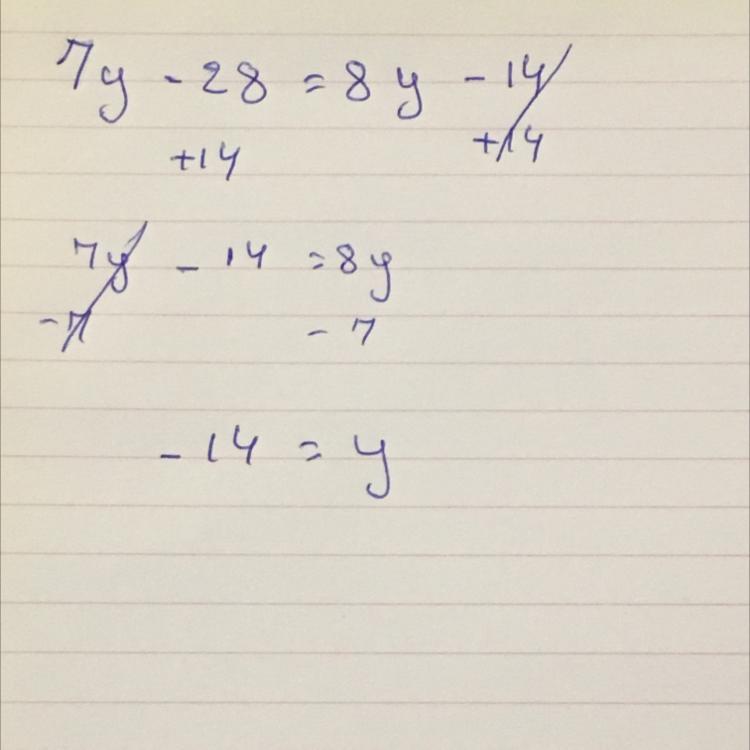 7y - 28 = 8y - 14
+14 +14
7y - 14 = 8y
-7 - 7
- 14 = y